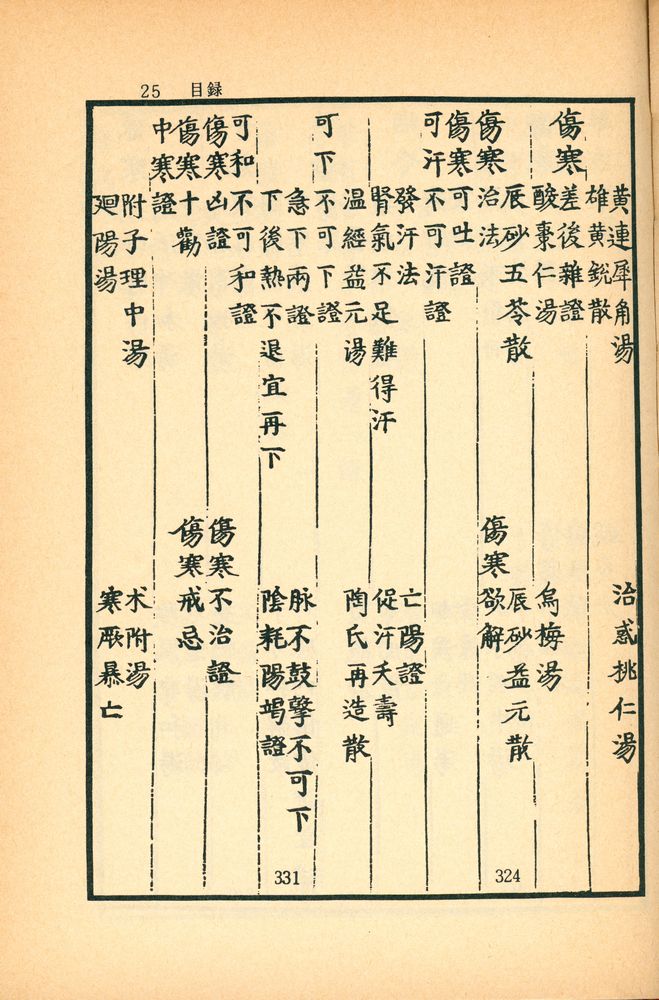 25 目録
黄連犀角湯 治惑挑仁湯
雄黄鋭散
傷寒差後雜證
酸棗仁湯 烏梅湯
辰砂五苓散 辰砂益元散
傷寒治法 傷寒欲解
324
傷寒可吐證
可汗不可汗證
發汗法 亡陽證
腎氣不足難得汗 促汗夭壽
温經益元湯 陶氏再造散
可下不可下證
急下兩證 脉不鼓擊不可下
下後熱不退宜再下 陰耗陽竭證
331
可和不可和證
傷寒凶證 傷寒不治證
傷寒十勸 傷寒戒忌
中寒證
附子理中湯 术附湯
廻陽湯 寒厥暴亡